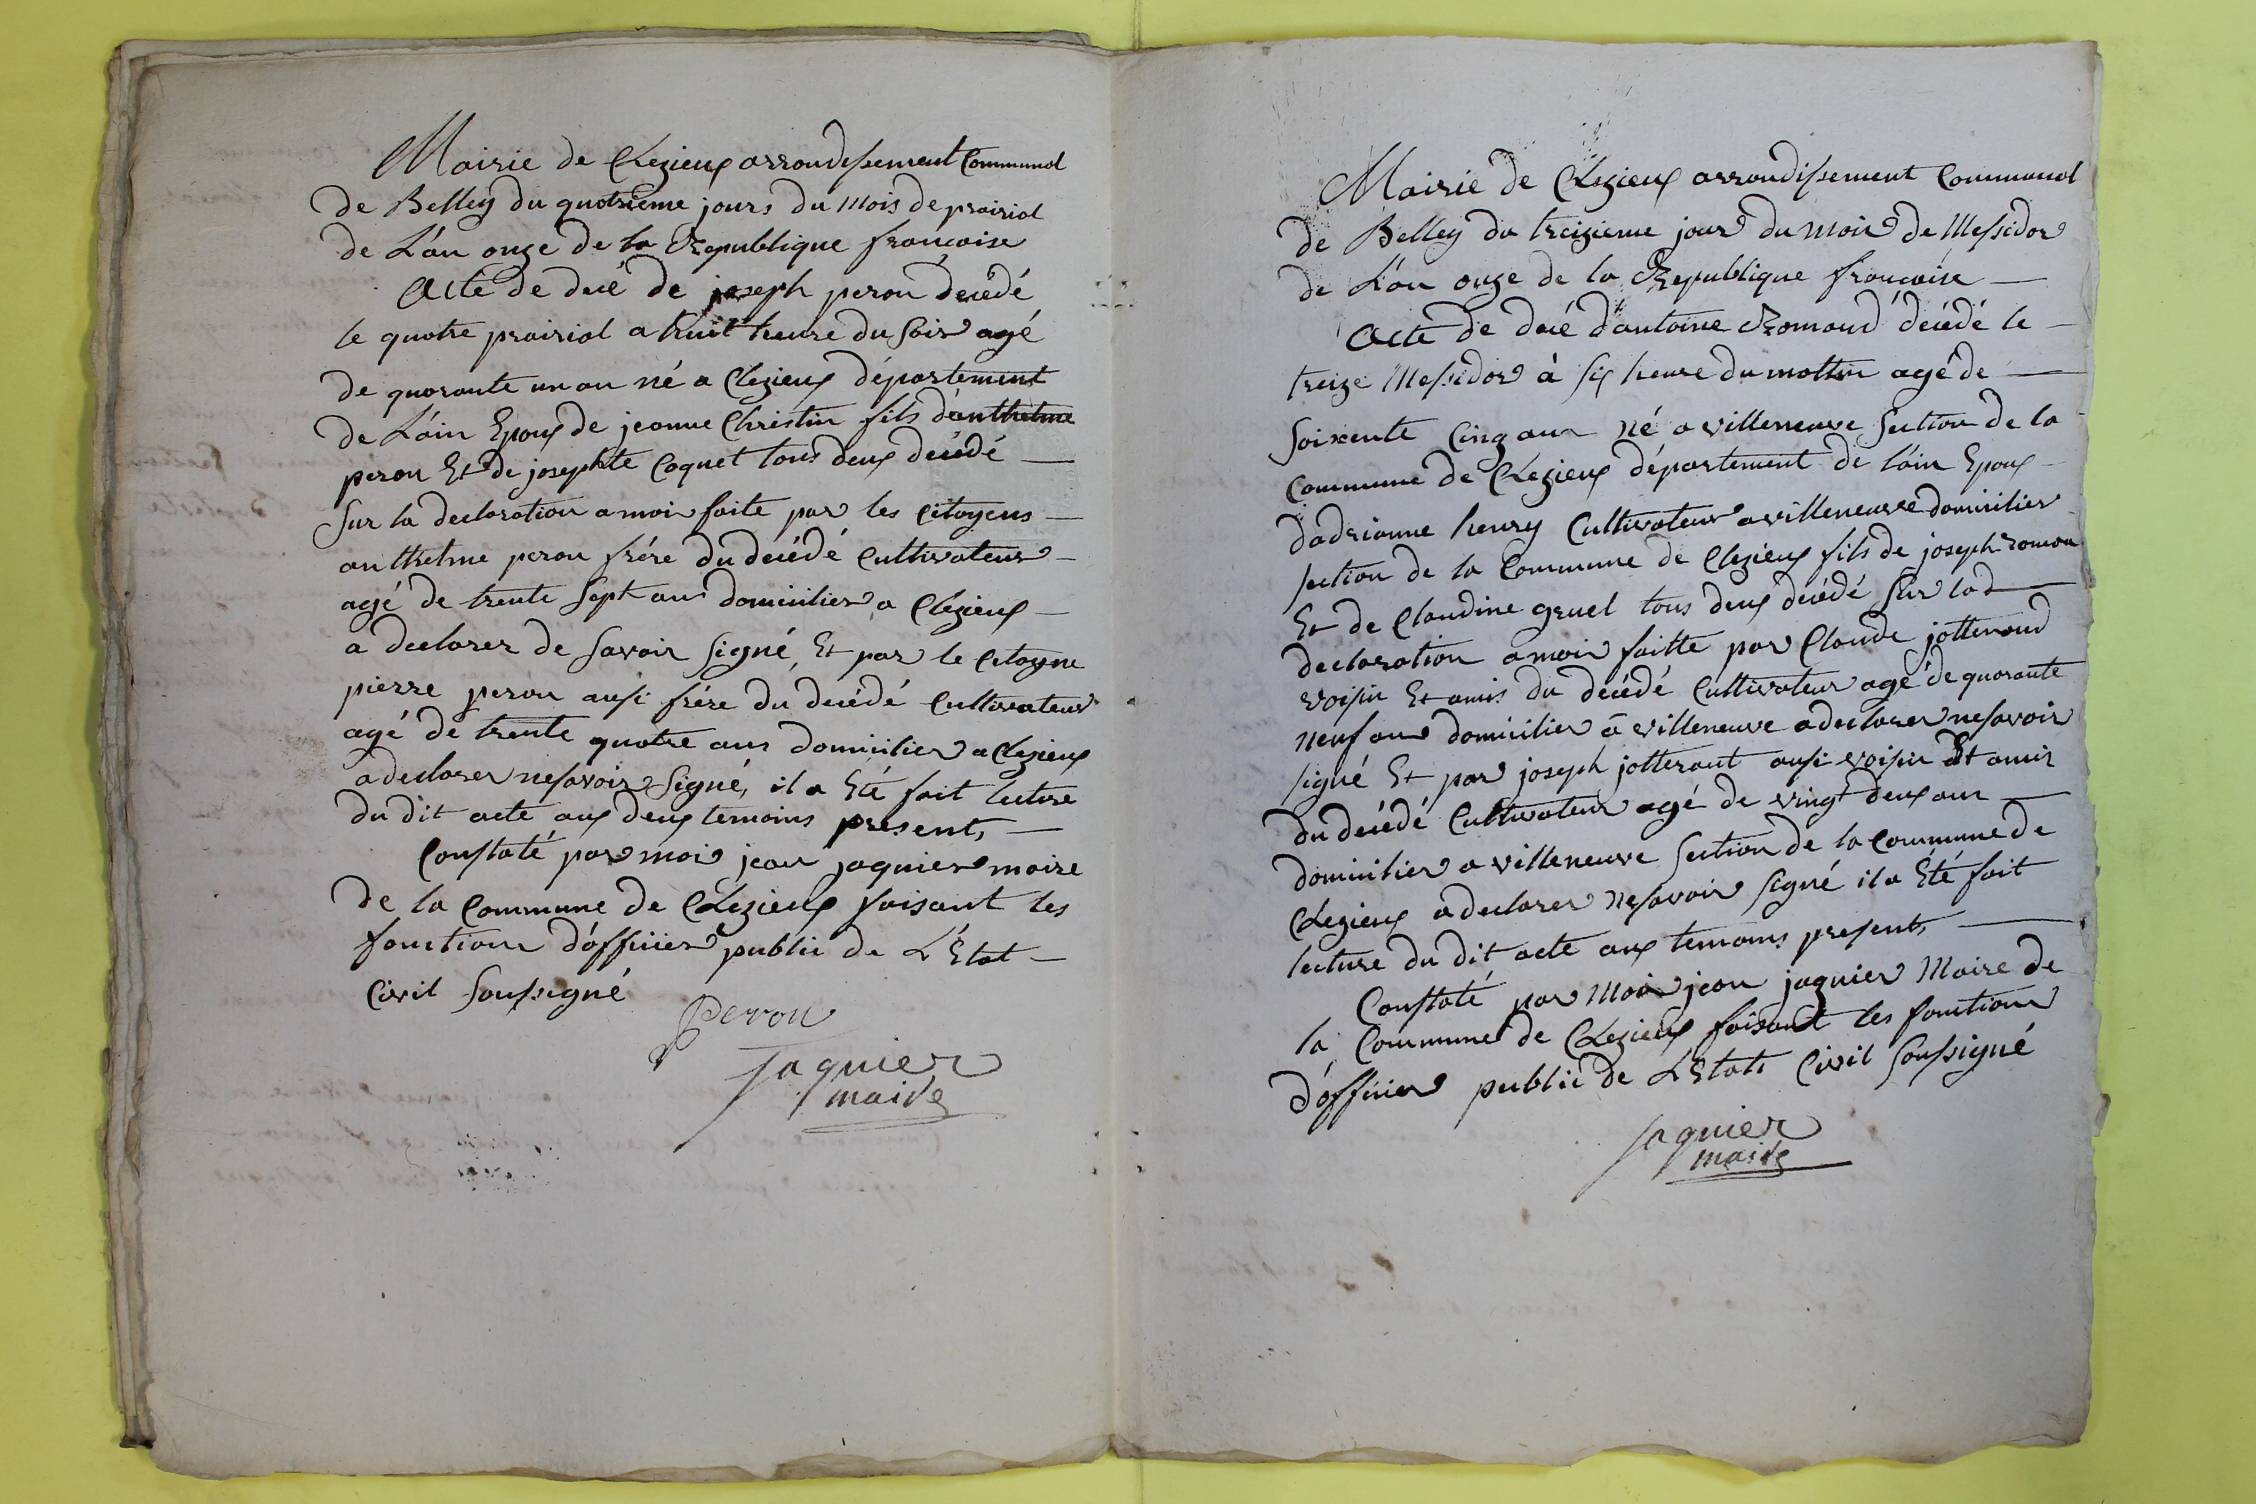 Mairie de Clezieux arrondissement Communal
de Belley du quatrième jours du Mois de prairial
de L'an onze de la Republique francaise
Acte de decé de joseph peron decédé
le quatre prairial a huit heure du soir agé
de quarante un an né a Clezieux département
de L'ain Epoux de jeanne Christin fils d'anthelme
peron Et de josephte Coquet tous deux decédé
Sur la declaration a moi faite par les Citoyens
anthelme peron frére du decédé Cultivateur
agé de trente Sept ans domicilier a Clezieux
a declarer de savoir signé, Et par le Citoyne
pierre peron aussi frére du decédé Cultivateur
agé de trente quatre ans domicilier a Clezieux
a declarer ne savoir Signé, il a Eté fait lecture
du dit acte aux deux temoins present,
Constaté par moi jean jaquier maire
de la Commune de Clezieux faisant les
fonctions d'officier public de L'Etat
Civil Soussigné
Peron
Jaquier
maire
Mairie de Clezieux arrondissement Communal
de Belley du treizieme jour du Mois de Messidor
de L'an onze de la Republique francaise
Acte de decé d'antoine Romand decédé le
treize Messidor à six heure du mattin agé de
soixente Cinq ans né a villeneuve Section de la
Commune de Clezieux département de l'ain Epoux
d'adrianne henry Cultivateur a villeneuve domicilier
section de la Commune de Clezieux fils de joseph roman
Et de Claudine gruel tous deux decédé Sur lad
declaration a moi faitte par Claude jottenoud
voisin Et amis du decédé Cultivateur agé de quarante
neuf ans domicilier a villeneuve a declarer ne savoir
signé Et par joseph jotterant ausi voisin Et amis
du decédé Cultivateur agé de vingt deux ans
domicilier a villeneuve Section de la Commune de
Clezieux a declarer ne savoir signé il a Eté fait
lecture du dit acte aux temoins present,
Constaté par Moi jean jaquier Maire de
la Commune de Clezieux faisant les fonctions
d'officier public de L'Etats Civil Soussigné
Jaquier
maire